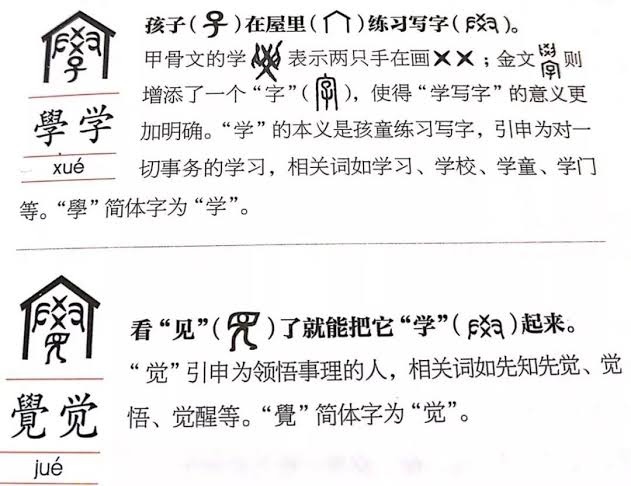 孩子( )在屋里( )练习写字( )。
甲骨文的学 表示两只手在画××；金文 则
增添了一个“字”( )，使得“学写字”的意义更
加明确。“学”的本义是孩童练习写字，引申为对一
學学
xué
切事务的学习，相关词如学习、学校、学童、学门
等。“學”简体字为“学”。
看“见”( )了就能把它“学”( )起来。
“觉”引申为领悟事理的人，相关词如先知先觉、觉
悟、觉醒等。“覺”简体字为“觉”。
覺觉
jué